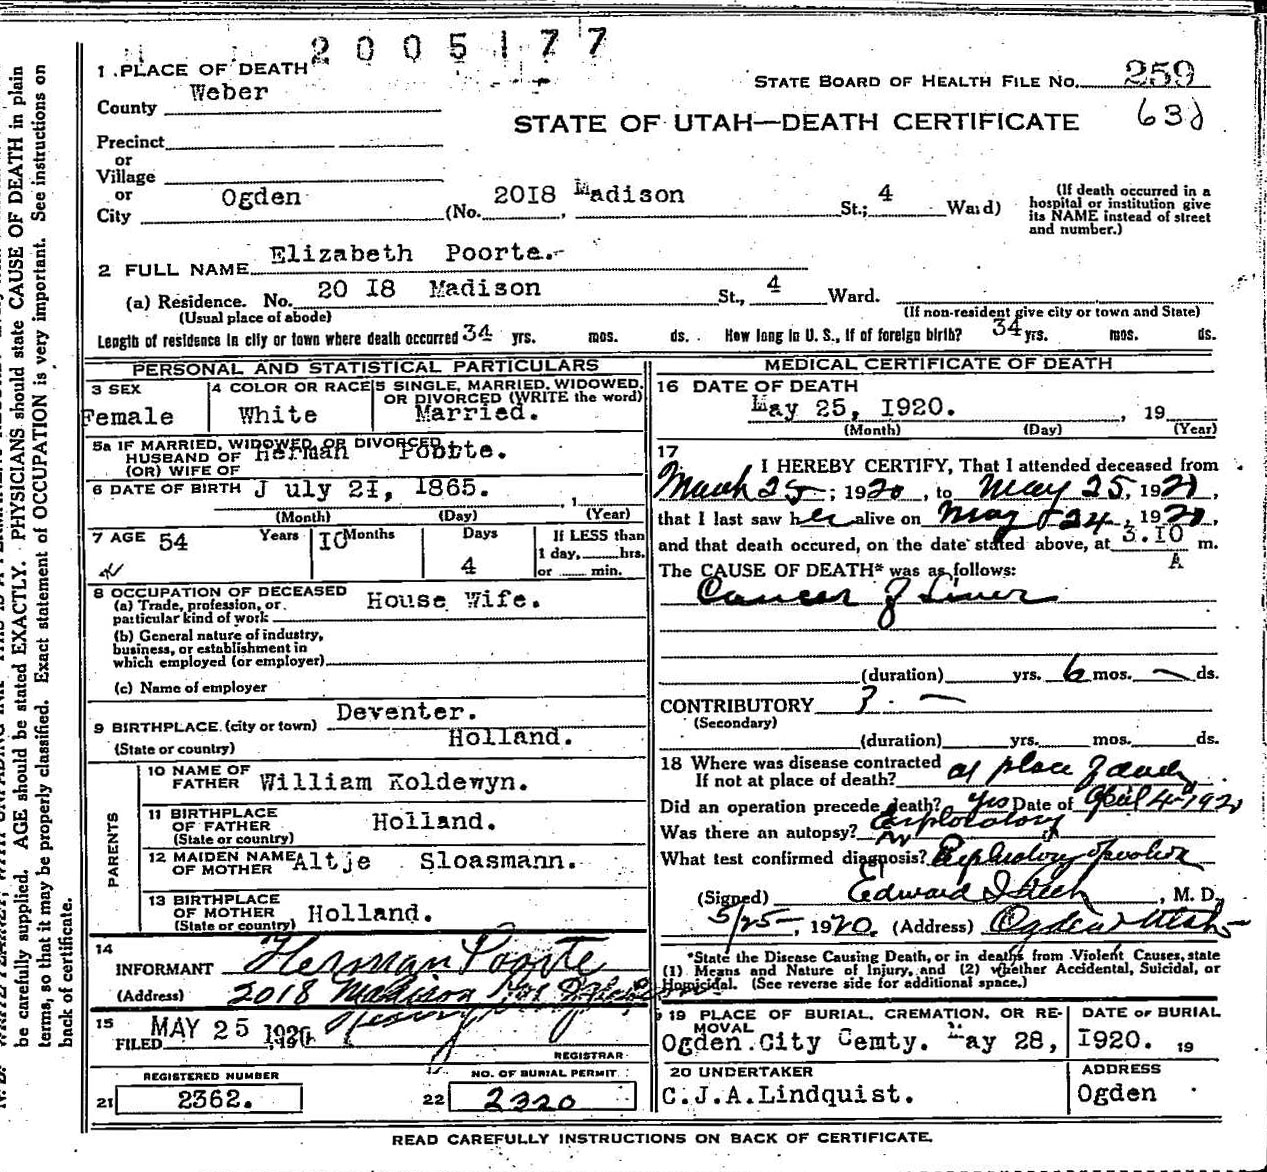 2005177
1 PLACE OF DEATH
STATE BOARD OF HEALTH FILE NO. 259
County Weber
63
STATE OF UTAH—DEATH CERTIFICATE
Precinct
or
Village
or
City Ogden (No. 2018 Madison St.; 4 Ward)
(If death occurred in a hospital or institution give its NAME instead of street and number.)
2 FULL NAME Elizabeth Poorte.-
(a) Residence. No. 20 I8 Madison St., 4 Ward.
(Usual place of abode) (If non-resident give city or town and State)
Length of residence in city or town where death occurred 34 yrs. mos. ds. How long in U. S., if of foreign birth? 34 yrs. mos. ds.
PERSONAL AND STATISTICAL PARTICULARS
3 SEX Female
4 COLOR OR RACE White
5 SINGLE, MARRIED, WIDOWED, OR DIVORCED (WRITE the word) Married.
5a IF MARRIED, WIDOWED, OR DIVORCED
HUSBAND OF Herman Poorte.
(OR) WIFE OF
6 DATE OF BIRTH J uly 2I, 1865. , 1
(Month) (Day) (Year)
7 AGE 54 Years I0 Months 4 Days
If LESS than
1 day, hrs.
or min.
8 OCCUPATION OF DECEASED House Wife.
(a) Trade, profession, or
particular kind of work
(b) General nature of industry,
business, or establishment in
which employed (or employer)
(c) Name of employer
9 BIRTHPLACE (city or town) Deventer.
(State or country) Holland.
PARENTS
10 NAME OF FATHER William Koldewyn.
11 BIRTHPLACE OF FATHER Holland.
(State or country)
12 MAIDEN NAME OF MOTHER Altje Sloasmann.
13 BIRTHPLACE OF MOTHER Holland.
(State or country)
14
INFORMANT Herman Poorte
(Address) 2018 Madison
15
FILED MAY 25 1920
REGISTRAR
REGISTERED NUMBER
21 2362.
NO. OF BURIAL PERMIT
22 2320
MEDICAL CERTIFICATE OF DEATH
16 DATE OF DEATH
May 25, I920. , 19
(Month) (Day) (Year)
17
I HEREBY CERTIFY, That I attended deceased from
March 25, 1920, to May 25, 1920,
that I last saw her alive on May 24, 1920,
and that death occured, on the date stated above, at 3.I0 m.
A
The CAUSE OF DEATH* was as follows:
Cancer of Liver
(duration) yrs. 6 mos. — ds.
CONTRIBUTORY ? -
(Secondary)
(duration) yrs. mos. ds.
18 Where was disease contracted
If not at place of death? at place of death
Did an operation precede death? yes Date of April 4-1920
Exploratory
Was there an autopsy?
What test confirmed diagnosis? Exploratory operation
(Signed) Edward , M. D.
5/25-, 1920. (Address) Ogden Utah
*State the Disease Causing Death, or in deaths from Violent Causes, state
(1) Means and Nature of Injury, and (2) whether Accidental, Suicidal, or
Homicidal. (See reverse side for additional space.)
19 PLACE OF BURIAL, CREMATION, OR REMOVAL
Ogden City Cemty. May 28,
DATE OF BURIAL
I920. 19
20 UNDERTAKER
C.J.A.Lindquist.
ADDRESS
Ogden
READ CAREFULLY INSTRUCTIONS ON BACK OF CERTIFICATE.
be carefully supplied. AGE should be stated EXACTLY. PHYSICIANS should state CAUSE OF DEATH in plain
terms, so that it may be properly classified. Exact statement of OCCUPATION is very important. See instructions on
back of certificate.